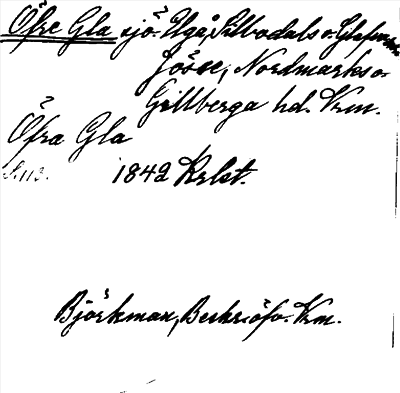 Öfre Gla sjö. Ugå, Silbodals o. Glafvu
Jösse, Nordmarks o.
Gillberga hd. Vrm.
Öfra Gla
S. 113. 1842 Krlst.
Björkman, Beskr. öfv. Vrm.